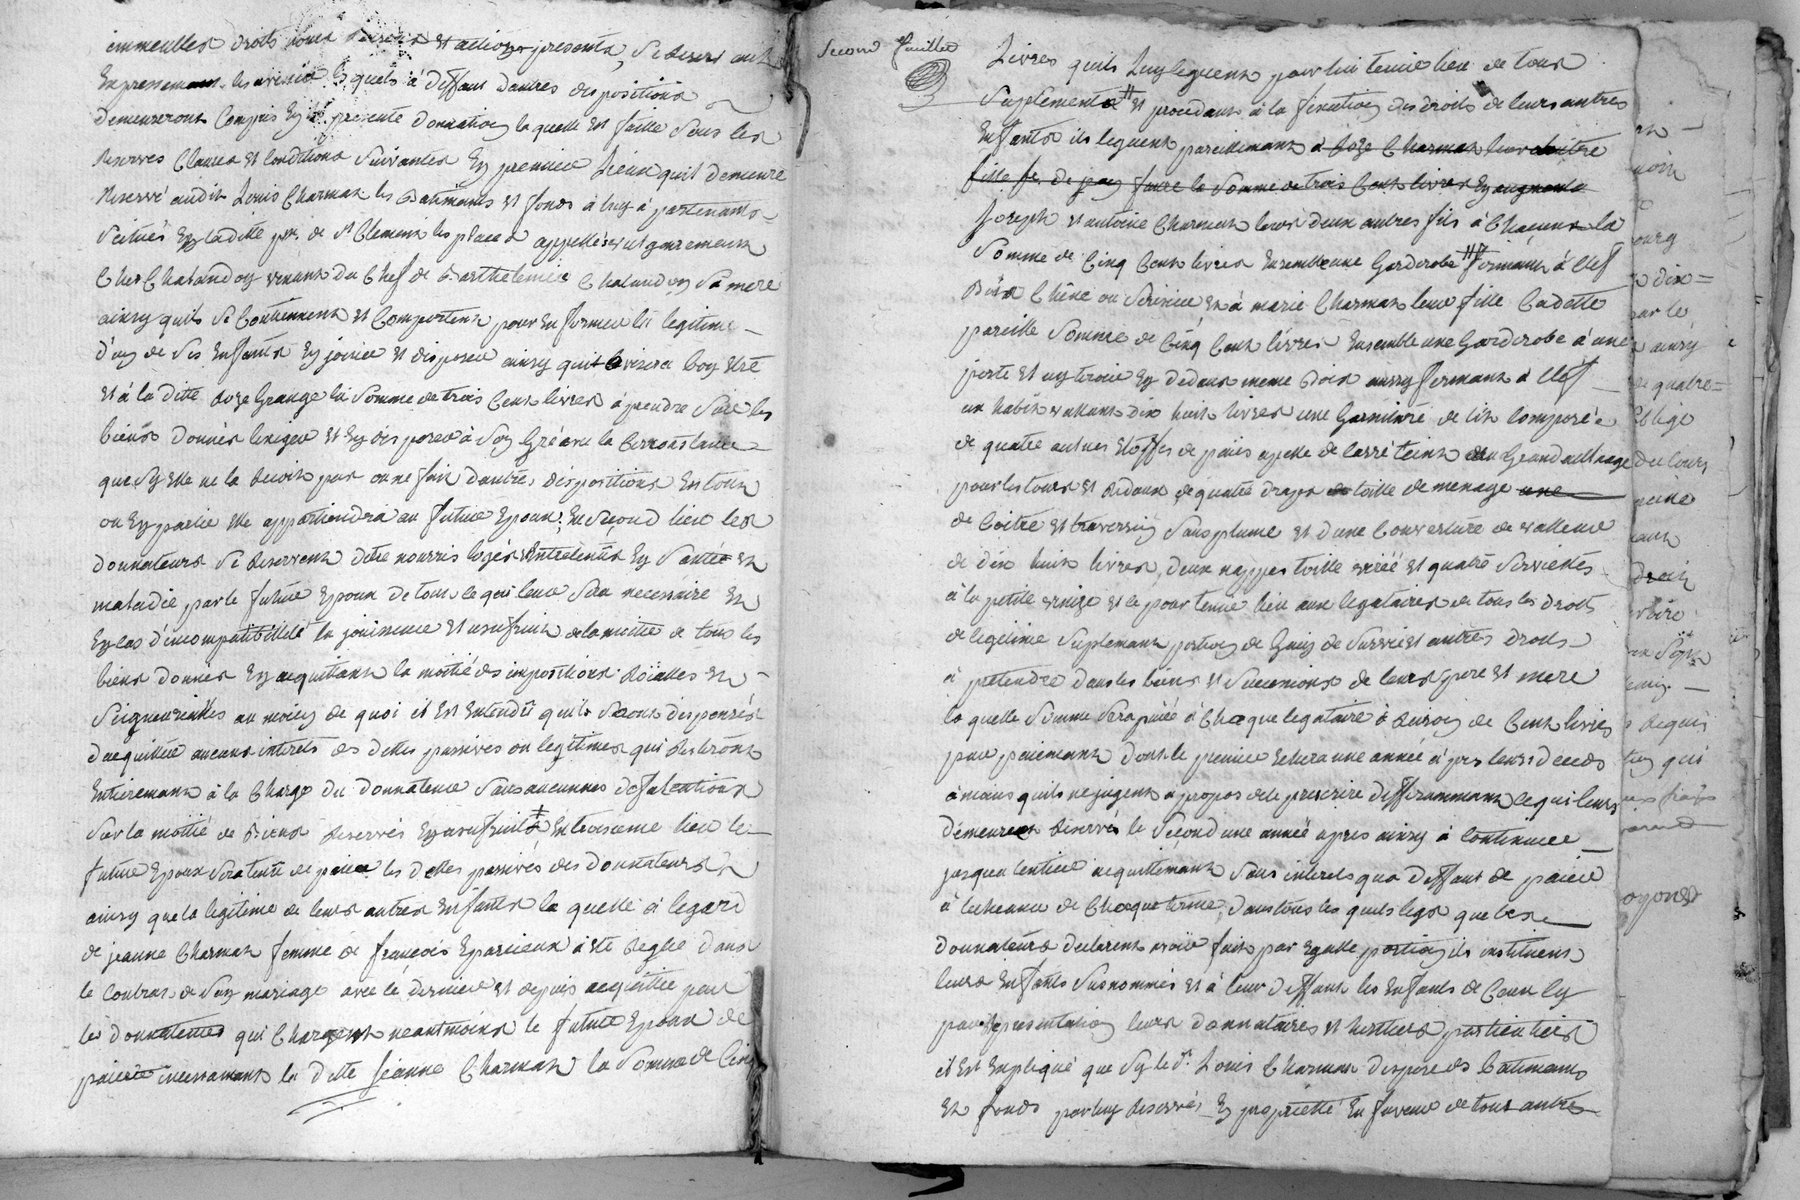 immeubles droits noms raisons et actions presents, se reservant
Expressement les avenir lesquels a deffaut dautres dispositions
demeureront Compris En la presente donnation la quelle Est faitte sous les
reserves Clauses et Conditions suivantes En premier Lieu quil demeure
Reservé audit Louis Charmat les Batiments et fonds a luy apartenants
scitués En laditte psse. de St Clement les places appellé vulgairement
Ches Chalandon venant du Chef de Barthelemie Chalandon sa mere
ainsy quils se Contiennent et Comportent pour En former la legitime
d'un de ses Enfants En jouir et disposer ainsy quil avisera bon Etre
et à la ditte Roze Grange la somme de trois Cent livres à prendre sur les
biens donnés lexiger et En disposer à son gré avec la Circonstance
que sy Elle ne la recoit pas ou ne fait dautres dispositions En tout
ou En partie Elle appartiendra au futur Epoux; En second lieu les
donnateurs se reservent detre nourris logés et Entretenus En santé et
maladie par le futur Epoux de tout ce qui leur sera necessaire Et
En Cas d'incompatibilleté la jouissance et usufruit de la moitié de tous les
biens donnés En acquittant la moitié des impositions Roïalles et
Seigneurialles au moien de quoi il Est Entendu quils seront dispensés
dacquitter aucuns interets des dettes passives ou legitimes qui resteront
Entierement à la Charge du donnateur sans aucunnes defalcations
sur la moitié de Biens reservés En usufruit ‡ En troisieme lieu le
futur Epoux sera tenu de paier les dettes passives des donnateurs
ainsy que la legitime de leurs autres Enfants la quelle à legard
de jeanne Charmat femme de françois Eparcieux a Eté reglée dans
le Contrat de son mariage avec le dernier et depuis acquittée par
les donnateurs qui Chargent neantmoins le futur Epoux de
paier incessament la ditte jeanne Charmat la somme de Cinq
Second feuillet
Livres quils Luy leguent pour lui tenir lieu de tous
suplements # et procedant à la fixation des droits de leurs autres
Enfants ils leguent pareillement à Roze Charmat leur
fille la somme de trois Cent livres En augment
Joseph et antoine Charmat leurs deux autres fils à Chacun la
somme de Cinq Cent livres Ensemble une Garderobe # fermant à Clef
Bois Chêne ou Serisier, Et à marie Charmat leur fille Cadette
pareille somme de Cinq Cent livres Ensemble une Garderobe à une
porte et un tiroir En dedans meme Bois aussy fermant à Clef
un habit vallant dix huit livres une Garniture de lit Composé
de quatre aulnes Etoffes de païs apellé de Carré teint au Grand
pour les tours et Rideaux, de quatre draps de toille de menage une
de Coitre et traversin sans plume et d'une Couverture de valleur
de dix huit livres, deux nappes toille et quatre serviettes
à la petite venize et le pour tenir lieu aux legataires de tous les droits
de legitime suplement portion de Gain de survie et autres droits
à pretendre dans les biens et successions de leurs pere et mere
la quelle somme sera païée à Chaque legataire à raison de Cent livres
par paiement dont le premier Echera une année apres leurs deceds
à moins quils ne jugent à propos de le prescrire differamment ce qui leurs
demeure reservés le second une année apres ainsy à Continuer
jusqua lentier acquittement sans interets qua deffaut de paier
à lecheance de Chaque terme, dans tous les quels legs que les
donnateurs declarent avoir fait par Egalle portion ils instituent
leurs Enfants susnommés et à leur deffaut les Enfants de Ceux cy
par representation leurs donnataires et heritiers particuliers
il Est Expliqué que sy le dt. Louis Charmat dispose des Batiments
et fonds par luy reservés En propriété En faveur de tous autres